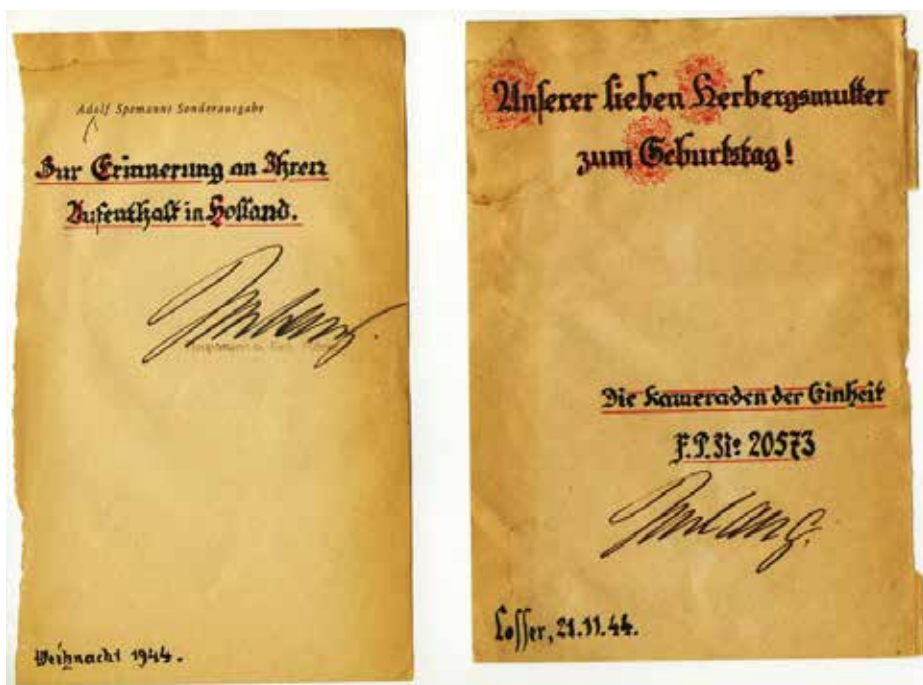 Adolf Spemanns Sonderausgabe
Zur Erinnerung an Ihren
Aufenthalt in Holland.
Hauptmann u.
Weihnacht 1944.
Unserer lieben Herbergsmutter
zum Geburtstag!
Die Kameraden der Einheit
F.P.Nr: 20573
Losser, 21.11.44.